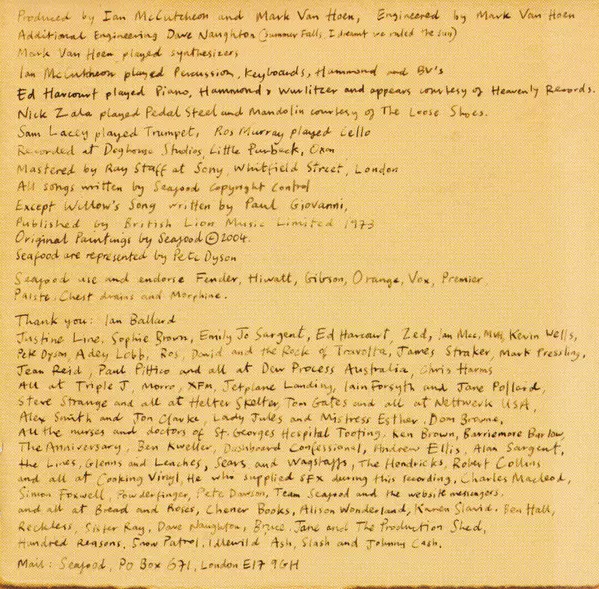 Produced by Ian McCutcheon and Mark Van Hoen, Engineered by Mark Van Hoen
Additional Engineering Dave Naughton (Summer Falls, I dreamt we ruled the sun)
Mark Van Hoen played synthesizers
Ian McCutcheon played Percussion, Keyboards, Hammond and BV's
Ed Harcourt played Piano, Hammond & Wurlitzer and appears courtesy of Heavenly Records.
Nick Zala played Pedal Steel and Mandolin courtesy of The Loose Shoes.
Sam Lacey played Trumpet, Ros Murray played cello
Recorded at Doghouse Studios, Little Purback, Oxon
Mastered by Ray Staff at Sony, Whitfield Street, London
All songs written by Seafood copyright control
Except Willow's Song written by Paul Giovanni,
Published by British Lion Music Limited 1973
Original Paintings by Seafood © 2004.
Seafood are represented by Pete Dyson
Seafood use and endorse Fender, Hiwatt, Gibson, Orange, Vox, Premier
Paiste, Chest drains and Morphine.
Thank you: Ian Ballard
Justine Line, Sophie Brown, Emily Jo Sargent, Ed Harcourt, Zed, Ian Mcc, MVH, Kevin Wells,
Pete Dyson, Adey Lobb, Ros, David and the Rock of Travolta, James Straker, Mark Pressling,
Jean Reid, Paul Pittico and all at Dew Process Australia, Chris Harms
All at Triple J, Morro, XFM, Jetplane Landing, Iain Forsyth and Jane Pollard,
Steve Strange and all at Helter Skelter, Tom Gates and all at Nettwerk USA,
Alex Smith and Jon Clarke, Lady Jules and Mistress Esther, Dom Browne,
All the nurses and doctors of St. Georges Hospital Tooting, Ken Brown, Barriemore Barlow,
The Anniversary, Ben Kweller, Dashboard Confessional, Andrew Ellis, Alan Sargent,
the Lines, Glenns and Leaches, Sears and Wagstaffs, The Hendricks, Robert Collins
and all at Cooking Vinyl, He who supplied SFX during this recording, Charles Macleod,
Simon Foxwell, Powderfinger, Pete Dawson, Team Seafood and the website messengers,
and all at Bread and Roses, Chener Books, Alison Wonderland, Karen Slavid. Ben Hall,
Reckless, Sister Ray, Dave Naughton, Bruce, Jane and The Production Shed,
Hundred Reasons, Snow Patrol, Idlewild Ash, Slash and Johnny Cash.
Mail: Seafood, PO Box 671, London E17 9GH